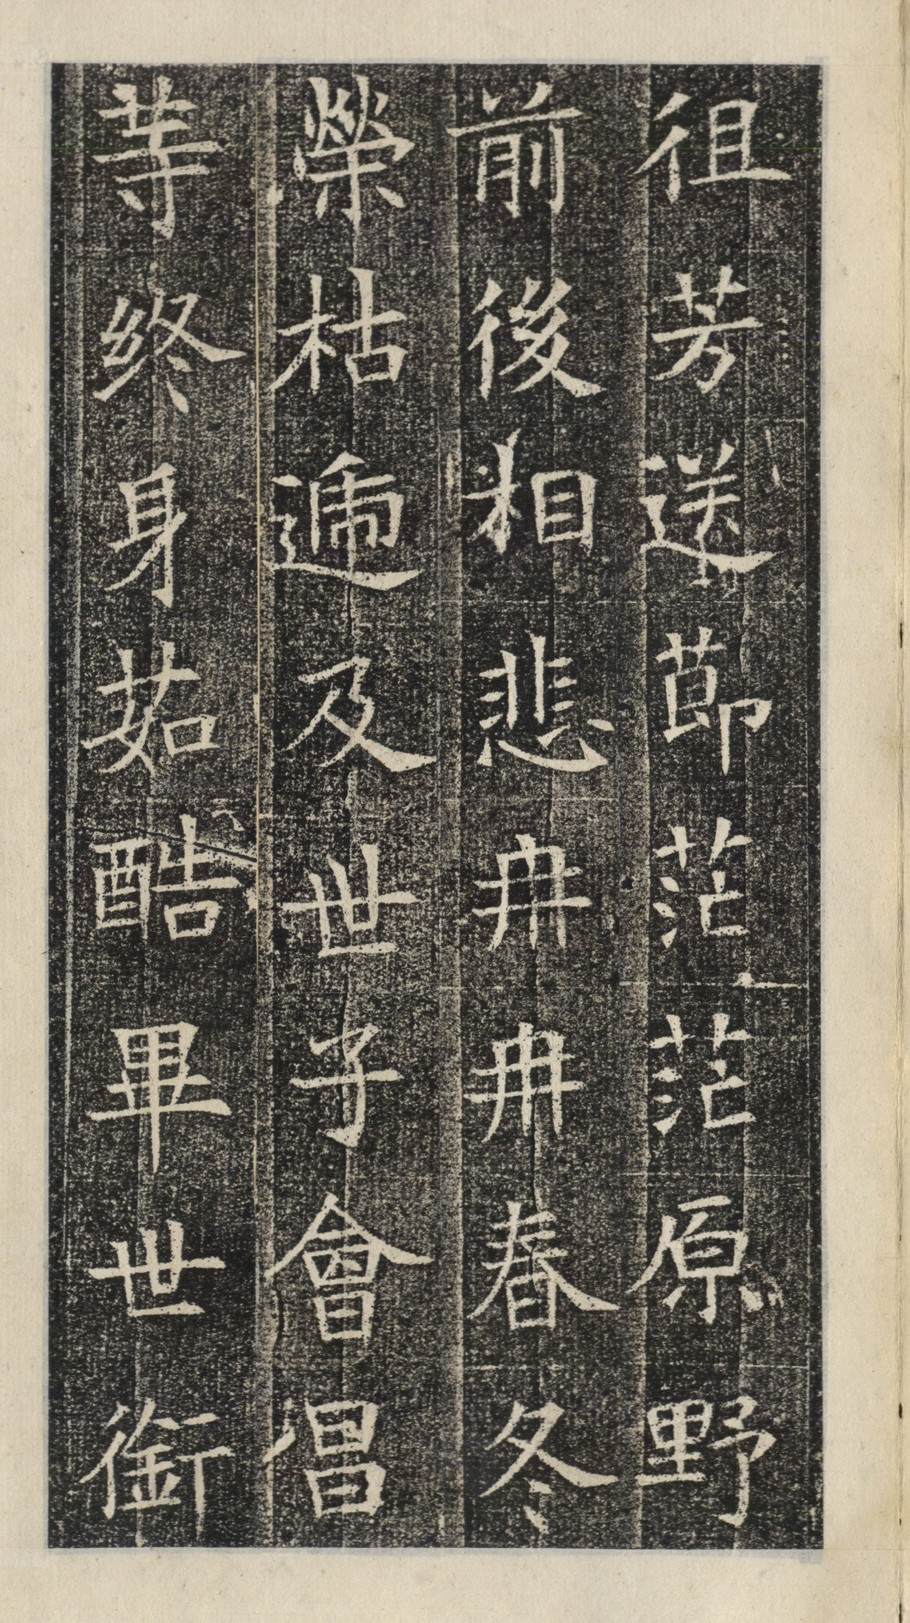 徂芳送莭茫茫原野
前後相悲冉冉春冬
榮枯遞及世子會倡
䒭終身茹酷畢世銜